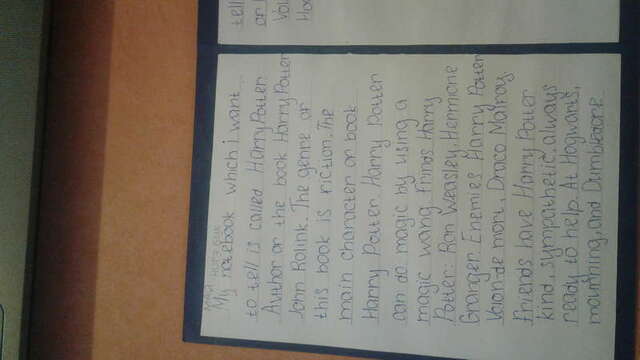 My notebook which i want
to tell is called Harry Potter
Author or the book Harry Potter
John Rolink. The genre or
this book is riction. The
main character or book
Harry Potter. Harry Potter
can do magic by using a
magic wang. Frinds Harry
Potter: Ron Weasley, Hermione
Granger. Enemies Harry Potter
Volon-de mort, Draco Malroy.
Friends have Harry Potter
kind, sympathetic, always
ready to help. At Hogwarts,
mourning, and Dumbledore
tell
or
Vol
Ho